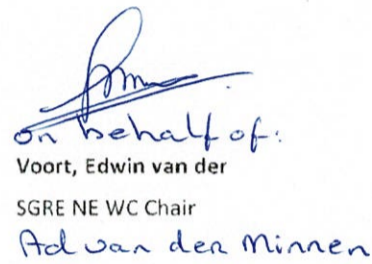 on behalf of:
Voort, Edwin van der
SGRE NE WC Chair
Ad van den Minnen